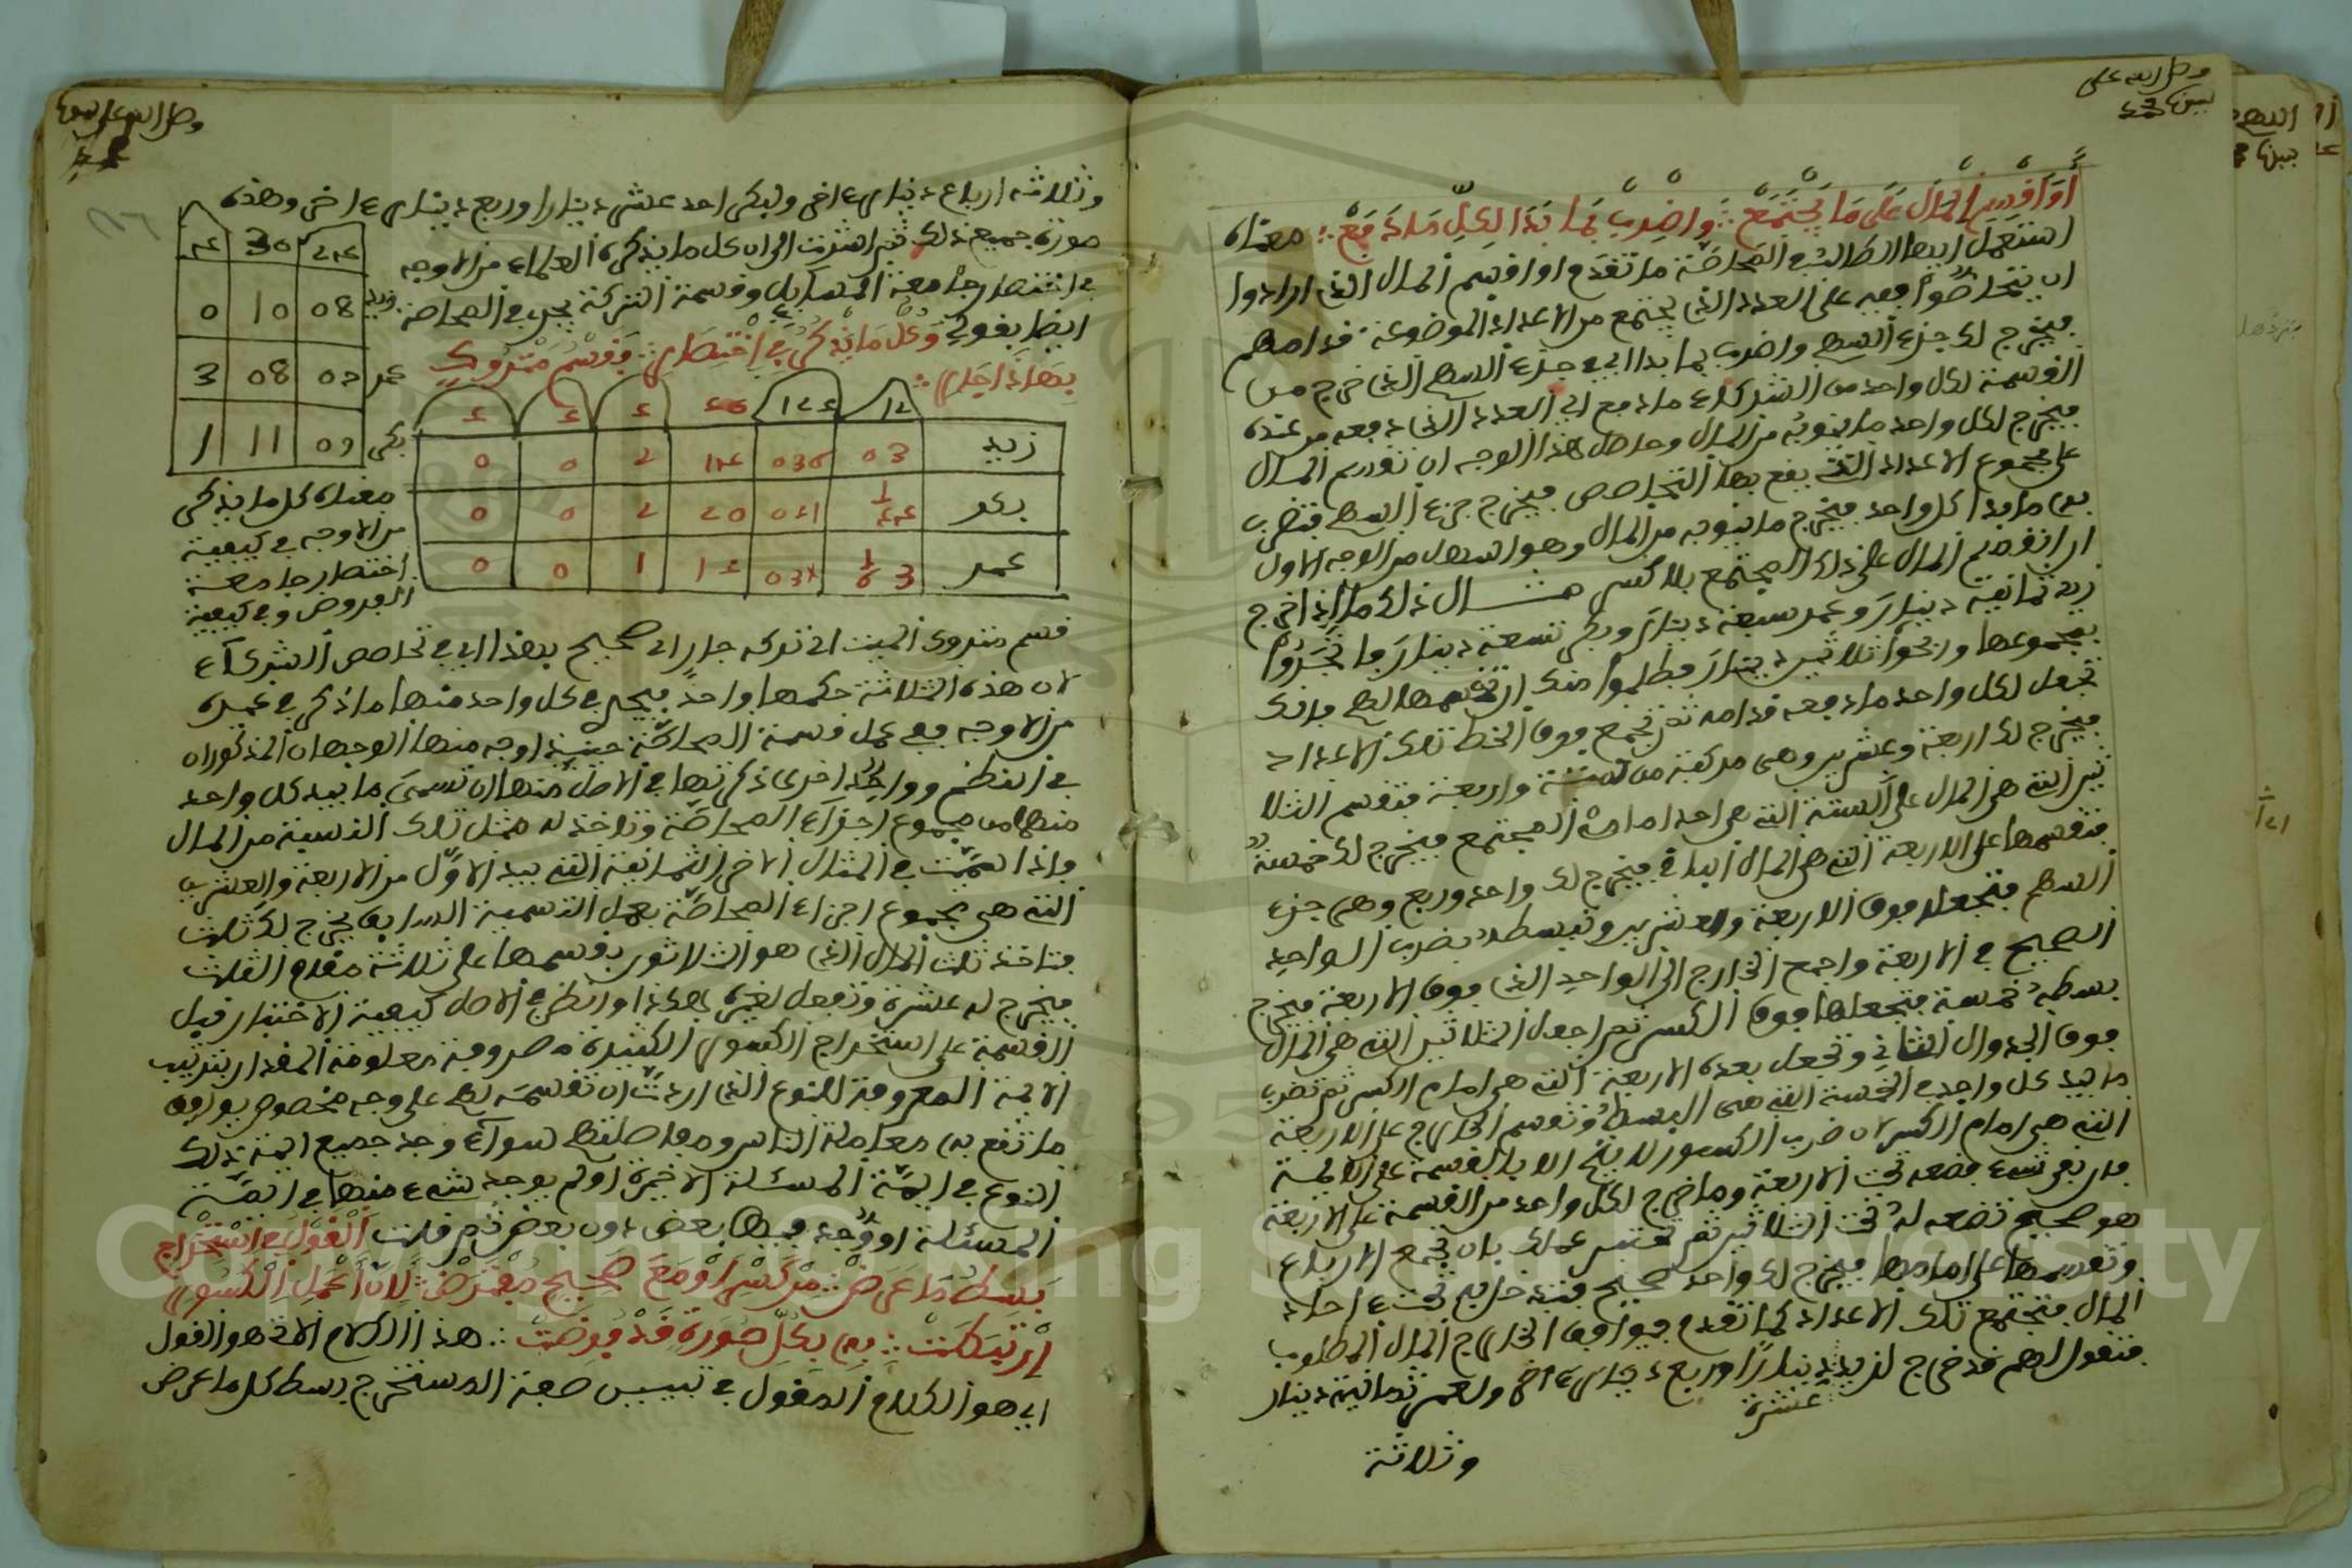 وصل الله على
أو اقسم المال على ما يجتمع واضرب بما بدا لكل ما دفع معناه
استعمل ايضا لطالب المحاصّة ما تقدم او اقسم المال الذي ارادوا
ان يتحاصّوا فيه على العدد الذي يجتمع من الاعداد الموضوعة قدامهم
فيخرج لك جزء السهم واضرب بما بدا اي في جزء السهم الذي خرج من
القسمة لكل واحد من الشركاء ما دفع اي العدد الذي دفعه من عنده
فيخرج لكل واحد ما ينوبه من المال وحاصل هذا الوجه ان تقسم المال
على مجموع الاعداد التي يقع بها التحاصص فيخرج جزء السهم فتضرب
فيه ما بيد كل واحد فيخرج ما ينوبه من المال وهو اسهل من الوجه الاول
ان انقسم المال على ذلك المجتمع بلا كسر مثال ذلك ما اذا اخرج
زيد ثمانية دينار وعمر سبعة دينار وبكر تسعة دينار فاتجروا
بمجموعها وربحوا ثلاثين دينار فطلبوا منك ان تقسمها لهم فانك
تجعل لكل واحد ما دفعه قدامه ثم تجمع فوق الخط تلك الاعداد
فيخرج لك اربعة وعشرين وهي مركبة من ستة واربعة فتقسم الثلا
ثين التي هي المال على الستة التي هي احد امامي المجتمع فيخرج لك خمسة
فتقسمها على الاربعة التي هي المال الباقي فيخرج لك واحد وربع وهي جزء
السهم فتجعله فوق الاربعة والعشرين وتبسطه بضرب الواحد
الصحيح في الاربعة واجمع الخارج الى الواحد الذي فوق الاربعة فيخرج
بسطه خمسة فتجعلها فوق الكسر ثم اجعل الثلاثين التي هي المال
فوق الجدوال الثاني وتجعل بعده الاربعة التي هي امام الكسر ثم تضرب
ما بيد كل واحد في الخمسة التي هي البسط وتقسم الخارج على الاربعة
التي هي امام الكسر لان ضرب الكسور لا يتم الا بالقسمة على الائمة
فان بقي شيء فضعه تحت الاربعة وما خرج لكل واحد من القسمة على الاربعة
هو صحيح تضعه له تحت الثلاثين ثم تختبر عملك بان تجمع الارباع
وتقسمها على امامها فيخرج لك واحد صحيح فتدخله تحت احاد
المال فتجتمع تلك الاعداد كما تقدم فيوافق الخارج المال المطلوب
فتقول لهم قد خرج لزيد عشرة دينارا وربع دينار اخر ولعمر ثمانية دينار
وثلاثة
وصل الله على
وثلاثة ارباع دينار اخر ولبكر احد عشر دينارا وربع دينار اخر وهذه
صورة جميع ذلك ثم اشرت الى ان كل ما يذكره العلماء من الاوجه
في اختصار جامعة المسايل وقسمة التركة يجري في المحاصة
ايضا بقولي وكل ما يذكر في اختصار وقسم متروك
بهذا جار
24 30 4
زيد 08 10 0
عمر 07 08 3
بكر 09 11 1
زيد
بكر
عمر
معناه كل ما يذكر
من الاوجه في كيفية
اختصار جامعة
الفروض وفي كيفية
قسم متروك الميت اي تركه جار اي صحيح بهذا اي في تحاصص الشركاء
لان هذه الثلاثة حكمها واحد فيجري في كل واحد منها ما ذكر في غيره
من الاوجه ففي عمل قسمة المحاصّة حينئذ اوجه منها الوجهان المذكوران
في النظم وواحد اخرى ذكرتها في الاصل منها ان تسمي ما بيد كل واحد
منهما من مجموع اجزاء المحاصّة وتاخذ له مثل تلك النسبة من المال
فاذا سميت في المثال الاخر الثمانية التي بيد الاول من الاربعة والعشرين
التي هي مجموع اجزاء المحاصّة بعمل التسمية السابق يخرج لك ثلث
فتاخذ ثلث المال الذي هو الثلاثون بقسمها على ثلاثة مقام الثلث
فيخرج له عشرة وتفعل لغيره هكذا وانظر في الاصل كيفية الاختبار قبل
القسمة على استخراج الكسور الكثيرة مصروفة معلومة المقدار بترتيب
الائمة المعروفة للنوع الذي اردت ان تقسمه لهم على وجه مخصوص يوافق
ما تقع به معاملة الناس ومفاصلتهم سواء وجد جميع ائمة ذلك
النوع في ائمة المسئلة الاخيرة او لم يوجد شيء منها في ائمة
المسئلة او وجد فيها بعض دون بعض ثم قلت القول في استخراج
بسط ما عرض من كسر او مع صحيح مفترض لان عمل الكسور
ان تبسطت به بكل صورة قد فرضت هذا الكلام الاتي هو القول
اي هو الكلام المقول في تبيين صفة المستخرج بسط كل ما عرض
Copyright © King Saud University